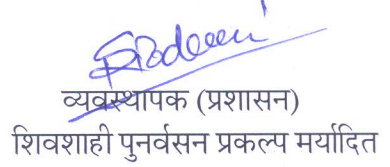 व्यवस्थापक (प्रशासन)
शिवशाही पुनर्वसन प्रकल्प मर्यादित